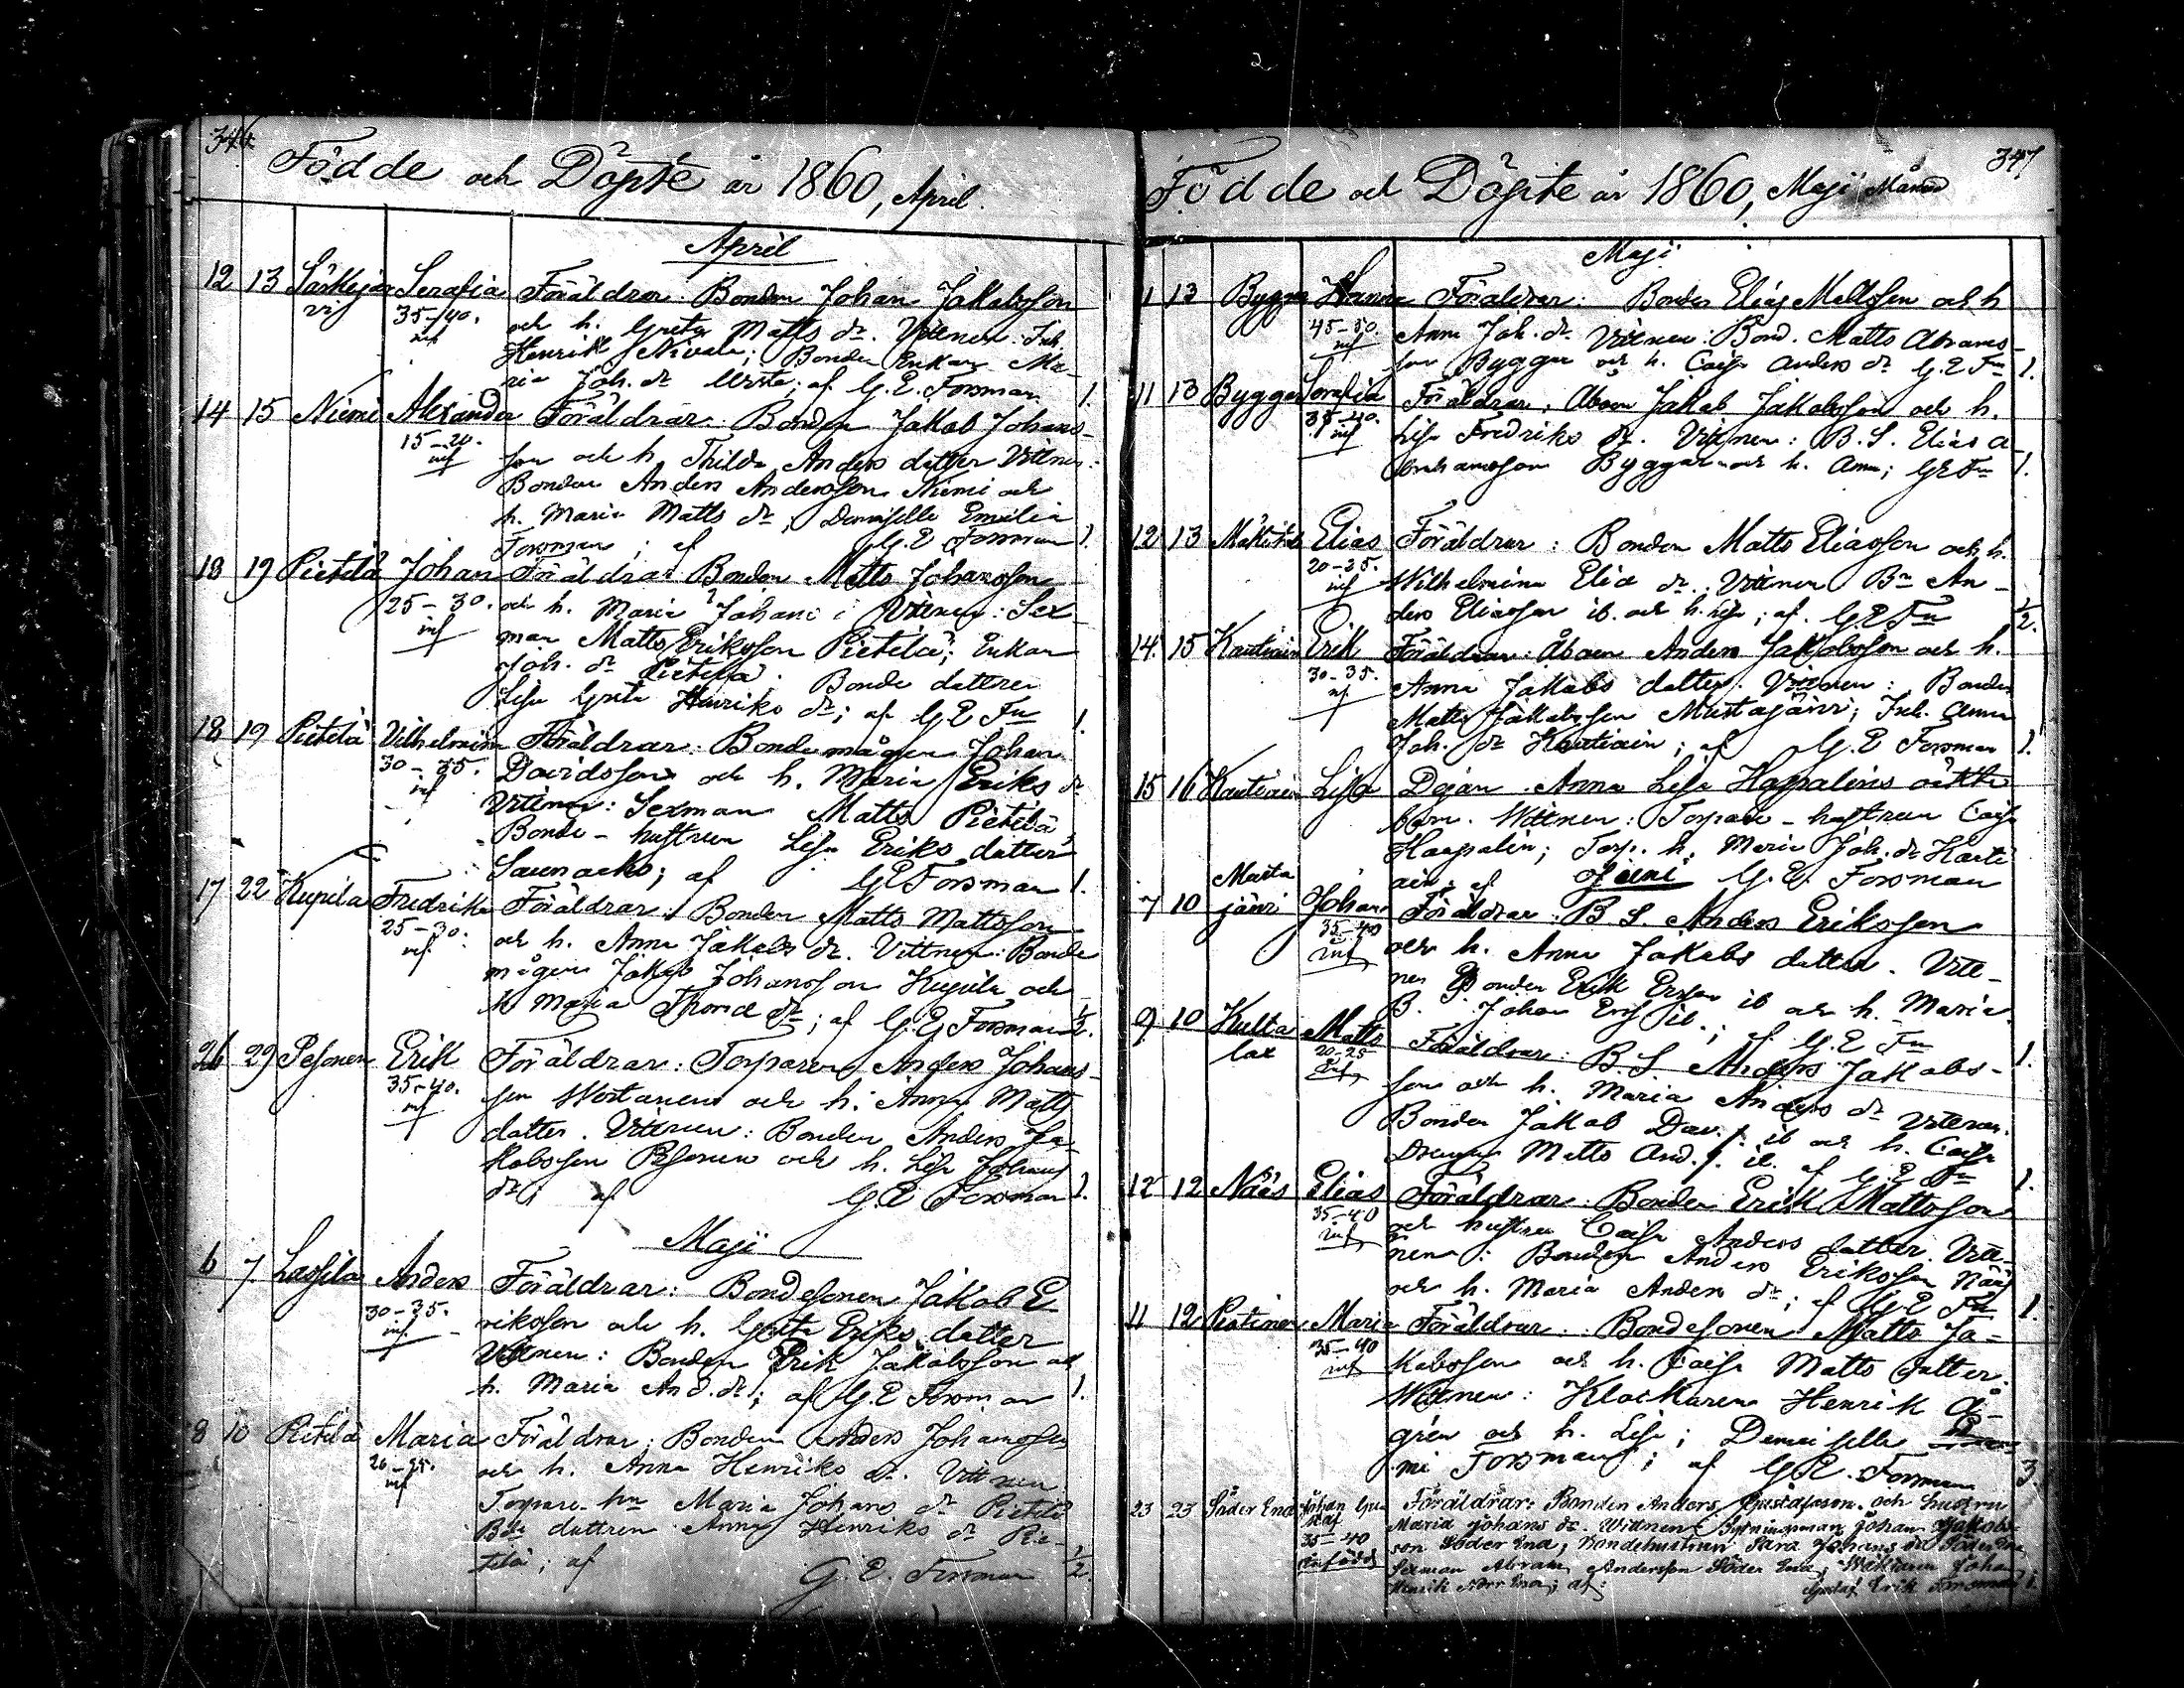 344
Födde och Döpte år 1860, April.
April
12 13 Särkijärvi Serafia Föräldrar: Bonden Johan Jakobsson
35-40. och h. Greta Matts dr. Vittnen: Inh.
inf Henrik Nivala; Bonden Enkan Ma-
ria Joh. dr af G. E. Forsman. 1.
14 15 Niemi Alexander Föräldrar: Bonden Jakob Johans-
15-20. son och h. Thilda Anders dotter Vittnen:
inf Bonden Anders Andersson Niemi och
h. Maria Matts dr; Demoiselle Emilia
Forsman; af G. E Forsman 1.
18 19 Pietilä Johan Föräldrar Bonden Matts Johansson
25-30. och h. Maria Johans; Vittnen: Sex-
inf man Matts Eriksson Pietilä; Enkan
Joh. dr Pietilä. Bonde dottren
Lisa Greta Henriks dr; af G E Fn 1.
18 19 Pietilä Vilhelmina Föräldrar: Bondemågen Johan
30-35. Davidsson och h. Maria Eriks dr
inf Vittnen: Sexman Matts Pietilä,
Bonde-hustrun Lisa Eriks dotter
Saunaoks; af G E Forsman 1.
17 22 Kupila Fredrika Föräldrar: Bonden Matts Mattsson
25-30. och h. Anna Jakobs dr. Vittnen: Bonde
inf mågen Jakob Johansson Kupila och
h Maria Thomæ dr; af G. E Forsman 1/2.
26 29 Pesonen Erik Föräldrar: Torparen Anders Johans-
35-40. son och h. Anna Matts
inf dotter. Vittnen: Bonden Anders Ja-
kobsson Pesonen och h. Lisa Johans
dr; af G E Forsman 1.
Maji
6 7. Lassila Anders Föräldrar: Bondesonen Jakob E-
30-35. riksson och h. Greta Eriks dotter
inf. Vittnen: Bonden Erik Jakobsson och
h. Maria And. dr; af G. E Forsman 1.
8 10 Pietilä Maria Föräldrar: Bonden Anders Johansson
20-25. och h. Anna Henriks dr. Vittnen
inf Torpare-hn Maria Johans dr Pietilä
Bde dottren Anna Henriks dr Pie-
tilä; af G. E. Forsman 1/2.
347
Födde och Döpte år 1860, Maji Månad
Maji
1 13 Byggar Hanna Föräldrar: Bonden Elias Mattsson och h
45-50. Anna Joh. dr Vittnen: Bond. Matts Abrams-
inf son Byggar och h. Caisa Anders dr G. E Fn 1.
11 13 Byggar Föräldrar: Åboen Jakob Jakobsson och h.
35-40. Lisa Fredriks dr. Vittnen: B. S. Elias A-
inf brahamsson Byggar och h. Anna; G E Fn 1.
12 13 Elias Föräldrar: Bonden Matts Eliasson och h.
20-25. Wilhelmina Eliæ dr. Vittnen Bn An-
inf ders Eliasson ib. och h. Lisa; af. G. E Fn 1/2.
14. 15 Kautiain Erik Föräldrar: Åboen Anders Jakobsson och h.
30-35. Anna Jakobs dotter. Vittnen: Bonden
inf Matts Jakobsson Mustajärvi; Inh. Anna
Joh. dr Kautiain; af G. E Forsman 1.
15 16 Kautiain Lisa Pigan Anna Lisa Haapalins oäkta
barn. Wittnen: Torpare-hustrun Caisa
Haapalin; Torp. h. Maria Joh. dr Kauti
ain; af G. E. Forsman
Juni
7 10 Mustajärvi Johan Föräldrar: B. S. Anders Eriksson
35-40 och h. Anna Jakobs dotter. Vitt-
inf nen Bonden Erik Ersson ib och h. Maria.
B. S. Johan Ers. ib.; af G. E Fn 1.
9. 10 Kultalax Matts Föräldrar: B. S Anders Jakobs-
20-25 son och h. Maria Anders dr Vittnen.
inf Bonden Jakob Dav. s. ib och h. Caisa
Drängen Matts And. s. ib. af G. E Fn 1.
12 12 Näis Elias Föräldrar: Bonden Erik Mattsson
35-40 och hustrun Caisa Anders dotter. Vitt-
inf nena: Bonden Anders Eriksson Näis
och h. Maria Anders dr; af G. E Fn 1.
11 12 Maria Föräldrar: Bondesonen Matts Ja-
35-40 kobsson och h. Caisa Matts dotter.
inf Wittnen: Klockaren Henrik Å-
grén och h. Lisa; Demoiselle
Forsman; af G. E. Forsman 3.
23 23 Söder Ena Johan Gustaf Föräldrar: Bonden Anders Gustafsson och hustru
35-40 Maria Johans dr. Wittnen: Johan Jakobs-
son Söder Ena, Bondehustrun Sara Johans dr Söder Ena
infödd Sexman Abram Andersson Söder Ena, Johan
Henrik Norr Ena; af: Gustaf Erik Forsman 1.